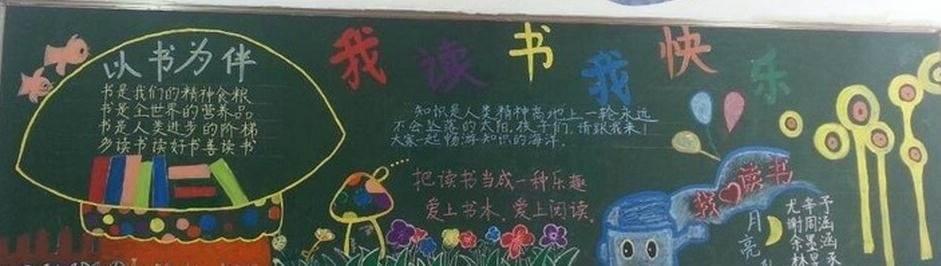 我读书我快乐
以书为伴
书是我们的精神食粮
书是全世界的营养品
书是人类进步的阶梯
多读书读好书善读书
知识是人类精神高地上一轮永远
不会坠落的太阳,孩子们,请跟我来!
大家一起畅游知识的海洋。
把读书当成一种乐趣
爱上书本、爱上阅读。
我 读书
月亮